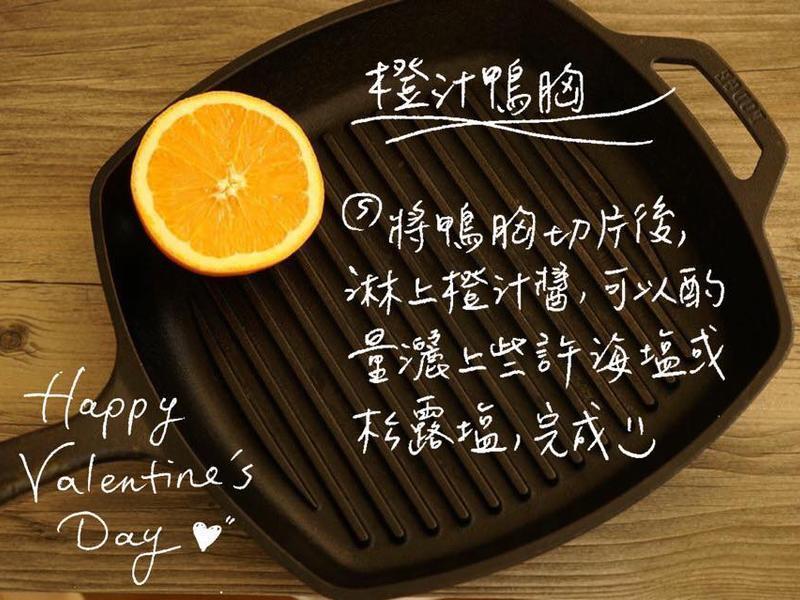 橙汁鴨胸
⑤將鴨胸切片後,
淋上橙汁醬,可以酌
量灑上些許海塩或
松露塩,完成:)
Happy
Valentine's
Day ♥"
LODGE